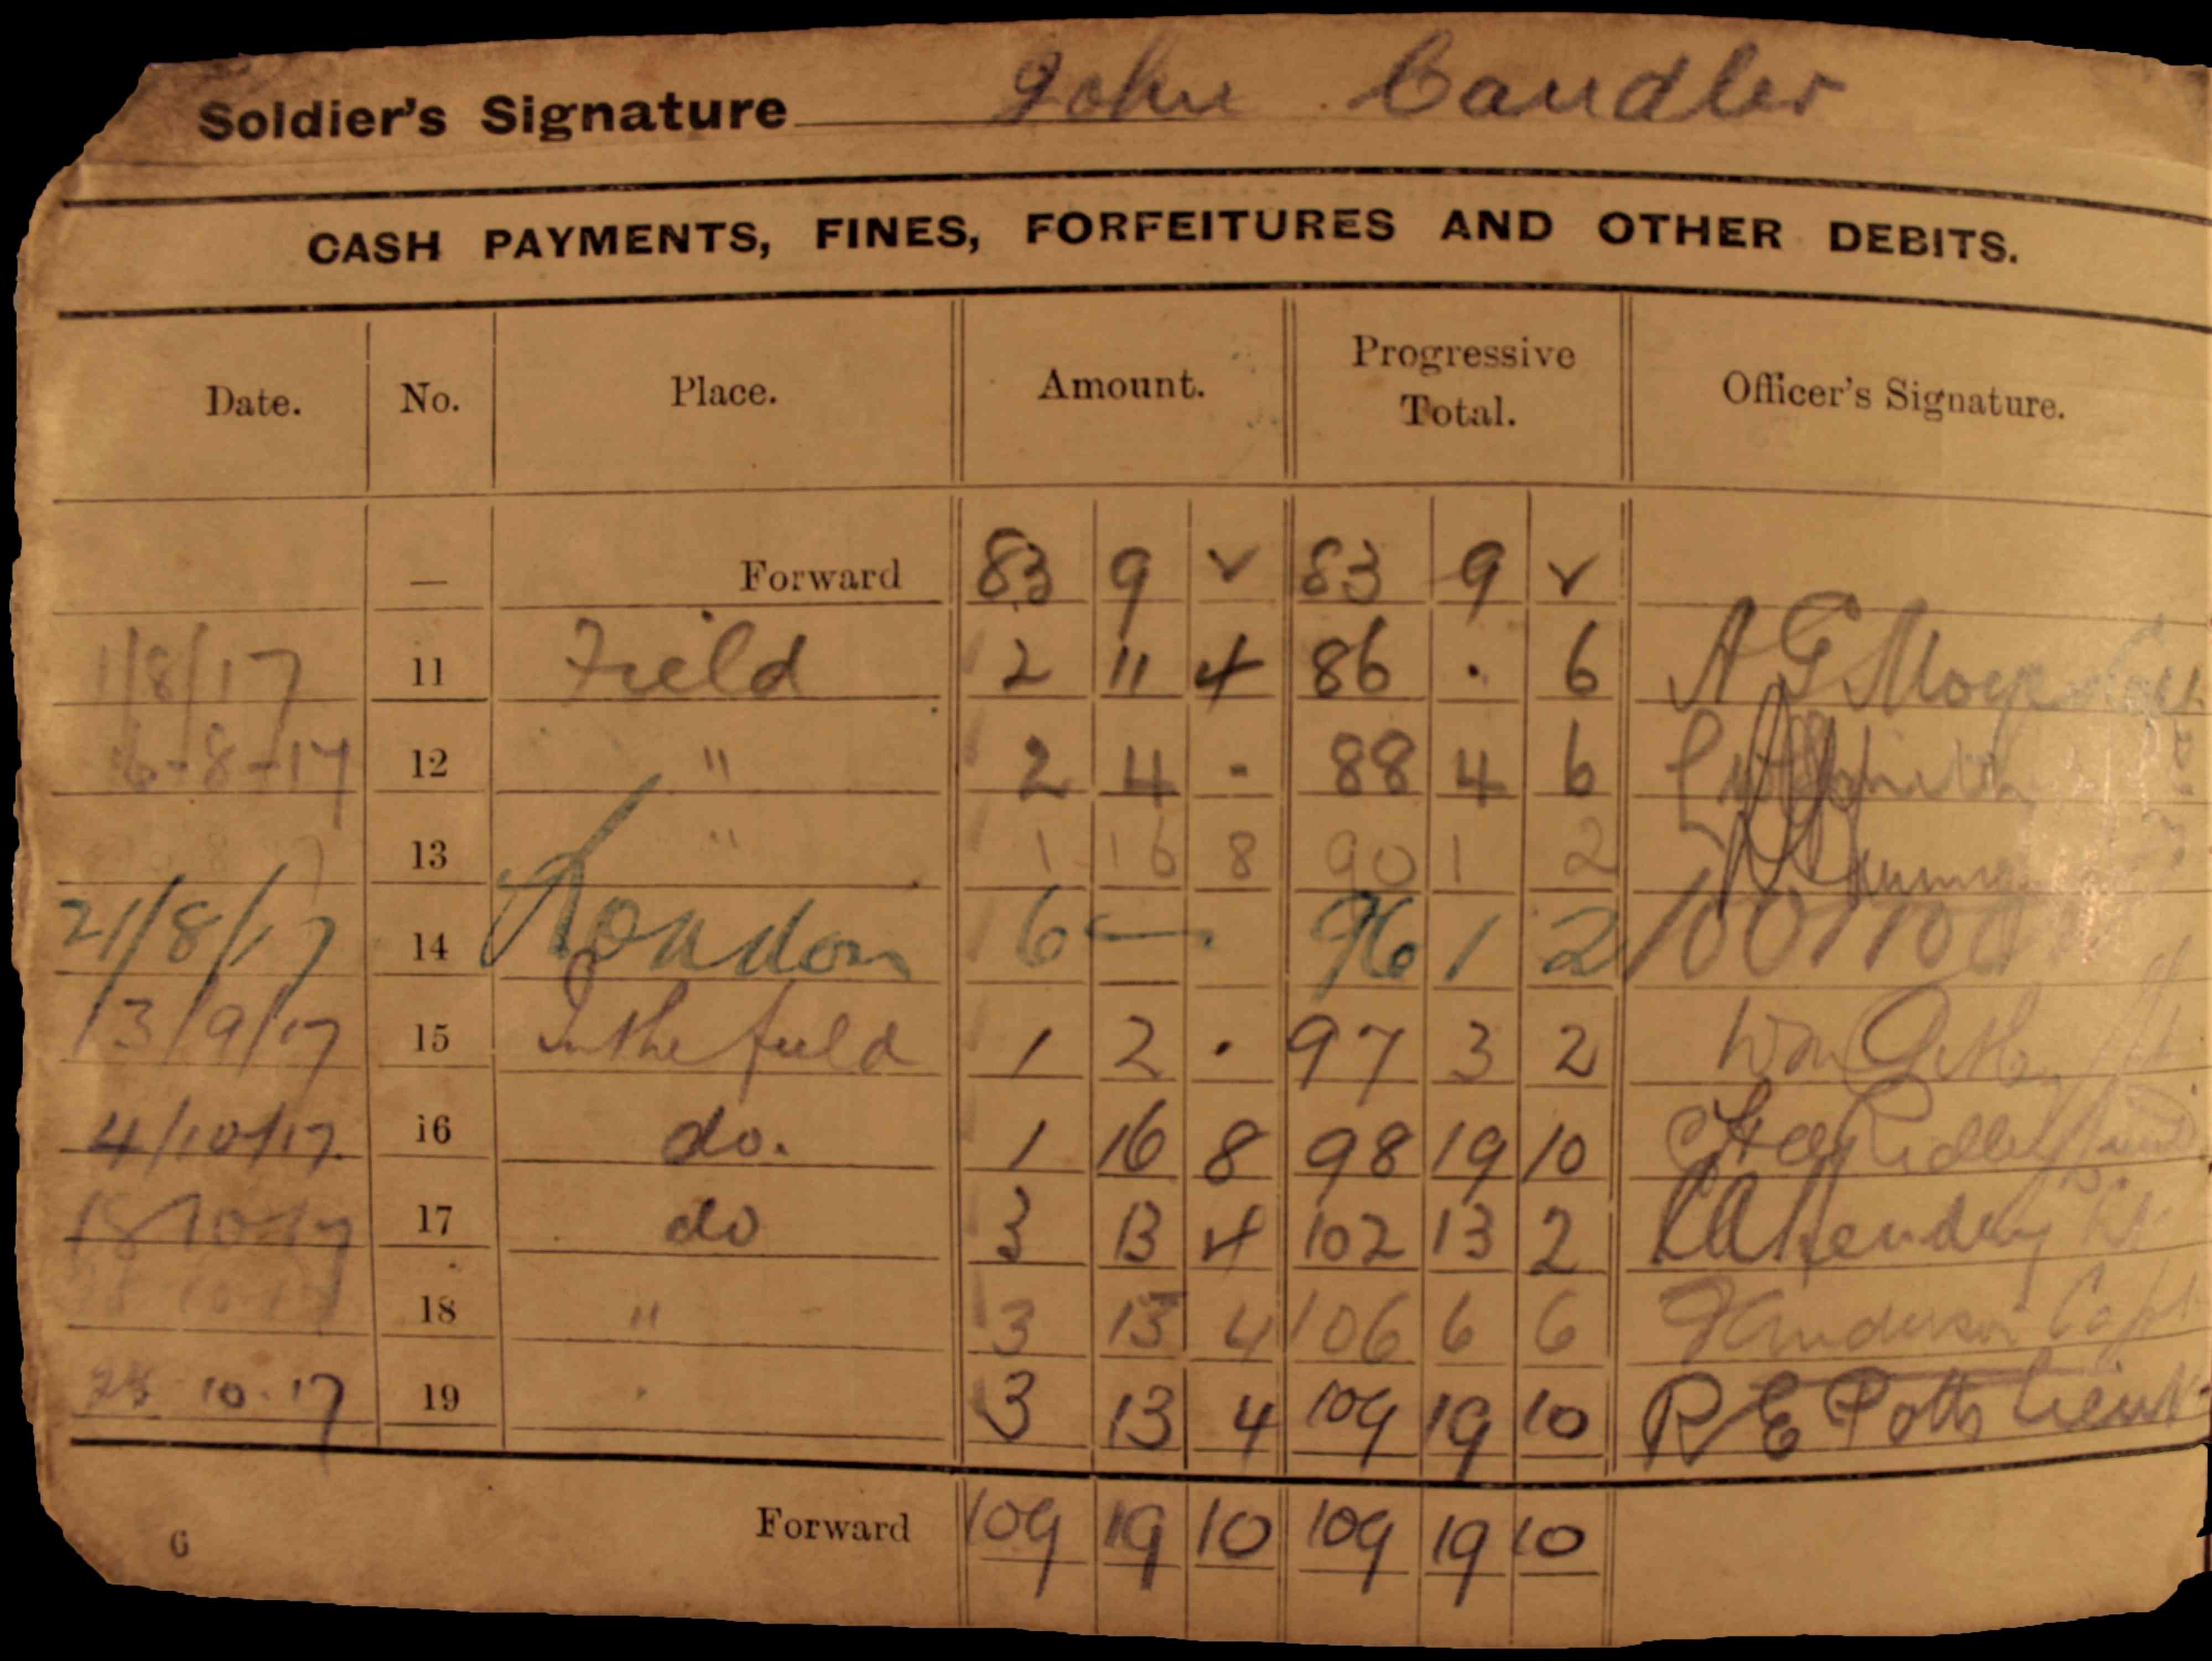 Soldier's Signature John Candler
CASH PAYMENTS, FINES, FORFEITURES AND OTHER DEBITS.
Date. No. Place. Amount. Progressive Total. Officer's Signature.
— Forward 83 9 2 83 9 2
1/8/17 11 Field 2 11 4 86 . 6 A G
6-8-17 12 " 2 4 - 88 4 6
13 " 1 16 8 90 1 2
21/8/17 14 London 6 — 96 1 2
13/9/17 15 In the field 1 2 . 97 3 2
4/10/17 16 do. 1 16 8 98 19 10 Ridley
18-10-17 17 do 3 13 4 102 13 2 Hendry Lt
10-17 18 " 3 13 4 106 6 6 Anderson Capt
10.17 19 " 3 13 4 109 19 10 R E Potts Lieut
6 Forward 109 19 10 109 19 10